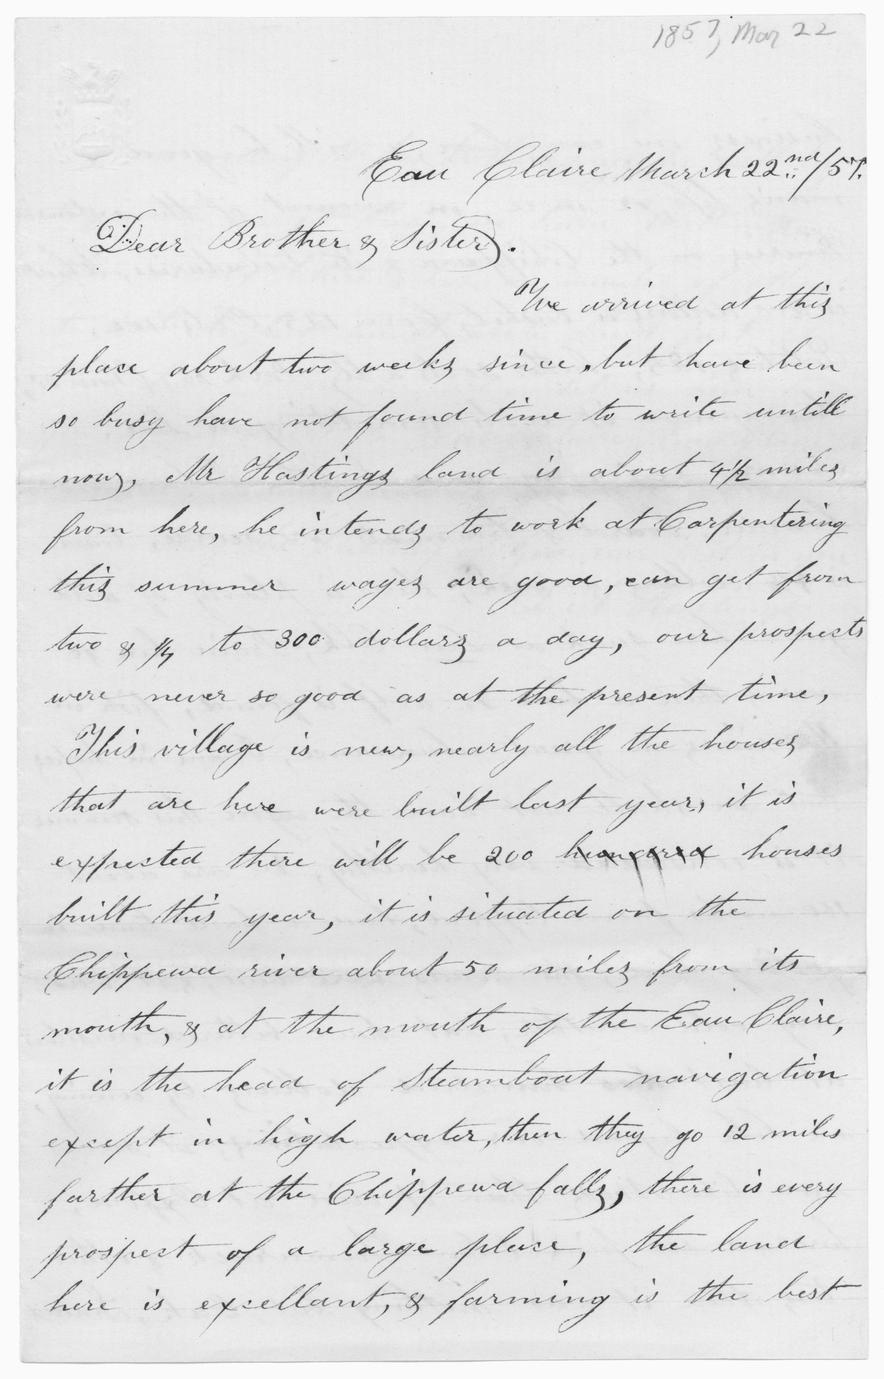 1857, Mar 22
Eau Claire March 22nd/57.
Dear Brother & Sister.
We arrived at this
place about two weeks since, but have been
so busy have not found time to write untill
now, Mr Hastings land is about 4 1/2 miles
from here, he intends to work at Carpentering
this summer wages are good, can get from
two & 1/4 to 300 dollars a day, our prospects
were never so good as at the present time,
This village is new, nearly all the houses
that are here were built last year, it is
expected there will be 200 hundred houses
built this year, it is situated on the
Chippewa river about 50 miles from its
mouth, & at the mouth of the Eau Claire,
it is the head of Steamboat navigation
except in high water, then they go 12 miles
farther at the Chippewa falls, there is every
prospect of a large place, the land
here is excellant, & farming is the best